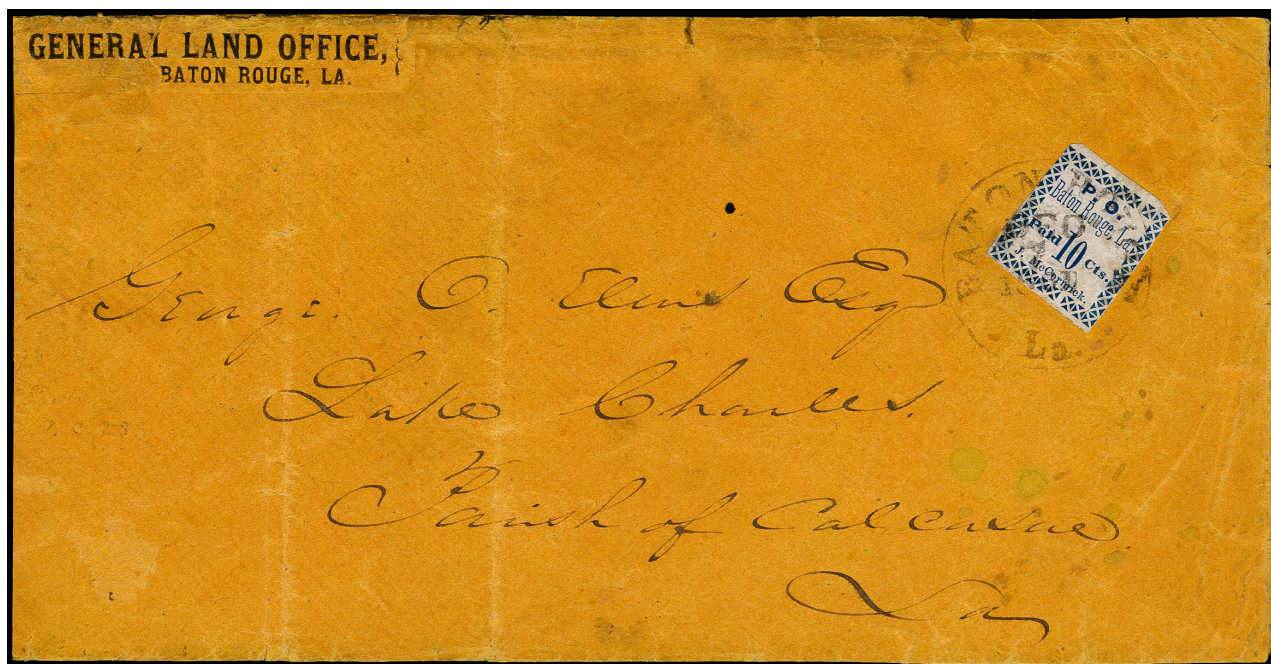 GENERAL LAND OFFICE,
BATON ROUGE, LA.
P. O.
Baton Rouge, La.
Paid 10 cts.
J. McCormick.
BATON
La.
George. C. Elms Esq
Lake Charles.
Parish of Calcasue
La